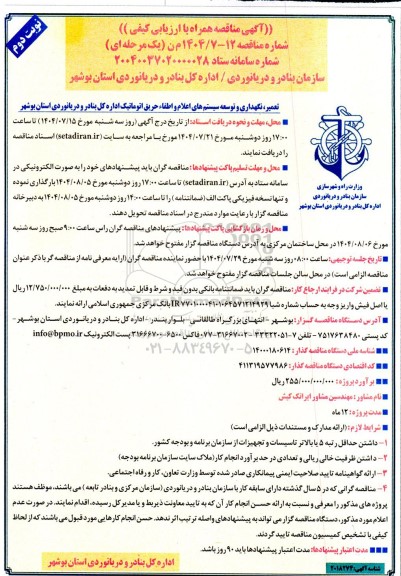 نوبت دوم
((آگهی مناقصه همراه با ارزیابی کیفی ))
شماره مناقصه ۱۲-۱۴۰۴/۷ م ن (یک مرحله ای)
شماره سامانه ستاد ۲۰۰۴۰۰۳۷۰۲۰۰۰۰۲۸
سازمان بنادر و دریانوردی / اداره کل بنادر و دریانوردی استان بوشهر
وزارت راه و شهرسازی
سازمان بنادر و دریانوردی
اداره کل بنادر و دریانوردی استان بوشهر
تعمیر، نگهداری و توسعه سیستم های اعلام و اطفاء حریق اتوماتیک اداره کل بنادر و دریانوردی استان بوشهر
محل، مهلت و نحوه دریافت اسناد: از تاریخ درج آگهی (روز سه شنبه مورخ ۱۴۰۴/۰۷/۱۵) تا ساعت
۱۷:۰۰ روز دوشنبه مورخ ۱۴۰۴/۰۷/۲۱ با مراجعه به سایت (setadiran.ir) اسناد مناقصه
را دریافت نمایند.
محل و مهلت تسلیم پاکت پیشنهادها: مناقصه گران باید پیشنهادهای خود را به صورت الکترونیکی در
سامانه ستاد به آدرس (setadiran.ir) تا ساعت ۱۷:۰۰ روز دوشنبه مورخ ۱۴۰۴/۰۸/۰۵ بارگذاری نموده
و تنها نسخه فیزیکی پاکت الف (ضمانتنامه) را تا ساعت ۱۴:۰۰ روز دوشنبه مورخ ۱۴۰۴/۰۸/۰۵ به دبیرخانه
مناقصه گزار با رعایت موارد مندرج در اسناد مناقصه تحویل دهند.
محل و زمان بازگشایی پاکت پیشنهادها: پیشنهادهای مناقصه گران راس ساعت ۹:۰۰ صبح روز سه شنبه
مورخ ۱۴۰۴/۰۸/۰۶ در محل ساختمان مرکزی به آدرس دستگاه مناقصه گزار مفتوح خواهد شد.
تاریخ جلسه توجیهی: ساعت ۰۸:۰۰ روز سه شنبه مورخ ۱۴۰۴/۰۷/۲۹ با حضور نماینده مناقصه گران (ارایه معرفی نامه از مناقصه گر با ذکر عنوان
مناقصه الزامی است) در محل سالن جلسات مناقصه گزار مفتوح خواهد شد.
تضمین شرکت در فرایند ارجاع کار: مناقصه گران باید ضمانتنامه بانکی بدون قید و شرط و قابل تمدید به دفعات به مبلغ ۱۲/۷۵۰/۰۰۰/۰۰۰ ریال
یا اصل فیش واریز وجه به حساب شماره شبا بانک مرکزی جمهوری اسلامی ارائه نمایند.
آدرس دستگاه مناقصه گزار: بوشهر - انتهای بزرگراه طالقانی - بلوار بندر - اداره کل بنادر و دریانوردی استان بوشهر -
کد پستی ۷۵۱۷۶۳۸۴۸۰ - پست الکترونیک info@bpmo.ir
شناسه ملی دستگاه مناقصه گذار: ۱۴۰۰۰۱۸۰۶۱۴
کد اقتصادی دستگاه مناقصه گذار: ۴۱۱۳۱۹۵۷۷۹۸۶
برآورد پروژه: ۲۵۵/۰۰۰/۰۰۰/۰۰۰ ریال
نام مشاور: مهندسین مشاور ایرانگ کیش
مدت پروژه: ۱۲ ماه
شرایط لازم: (ارائه مدارک و مستندات ذیل الزامی است)
۱- داشتن حداقل رتبه ۵ یا بالاتر تاسیسات و تجهیزات از سازمان برنامه و بودجه کشور.
۲- داشتن ظرفیت خالی ریالی و تعدادی در حد برآورد انجام کار (ملاک سایت سازمان برنامه بودجه)
۳- ارائه گواهینامه تایید صلاحیت ایمنی پیمانکاری صادر شده توسط وزارت تعاون، کار و رفاه اجتماعی.
۴- مناقصه گرانی که در ۵ سال گذشته دارای سابقه کار با سازمان بنادر و دریانوردی (سازمان مرکزی و بنادر تابعه) می باشند، موظف هستند
پروژه های مذکور را معرفی و نسبت به ارائه حسن انجام کار آن که به تایید معاونت ذیربط و یا مدیر کل رسیده، اقدام نمایند. در صورت عدم
اعلام مورد مذکور، دستگاه مناقصه گزار می تواند به پیشنهادهای واصله ترتیب اثر ندهد. حسن انجام کارهایی مورد قبول می باشند که از لحاظ
کیفی با تشخیص کمیسیون مناقصه تایید گردند.
مدت اعتبار پیشنهادها: مدت اعتبار پیشنهادها باید ۹۰ روز باشد.
اداره کل بنادر و دریانوردی استان بوشهر
شناسه آگهی: ۲۰۱۸۲۷۲
۰۲۱-۸۸۳۴۹۶۷۰